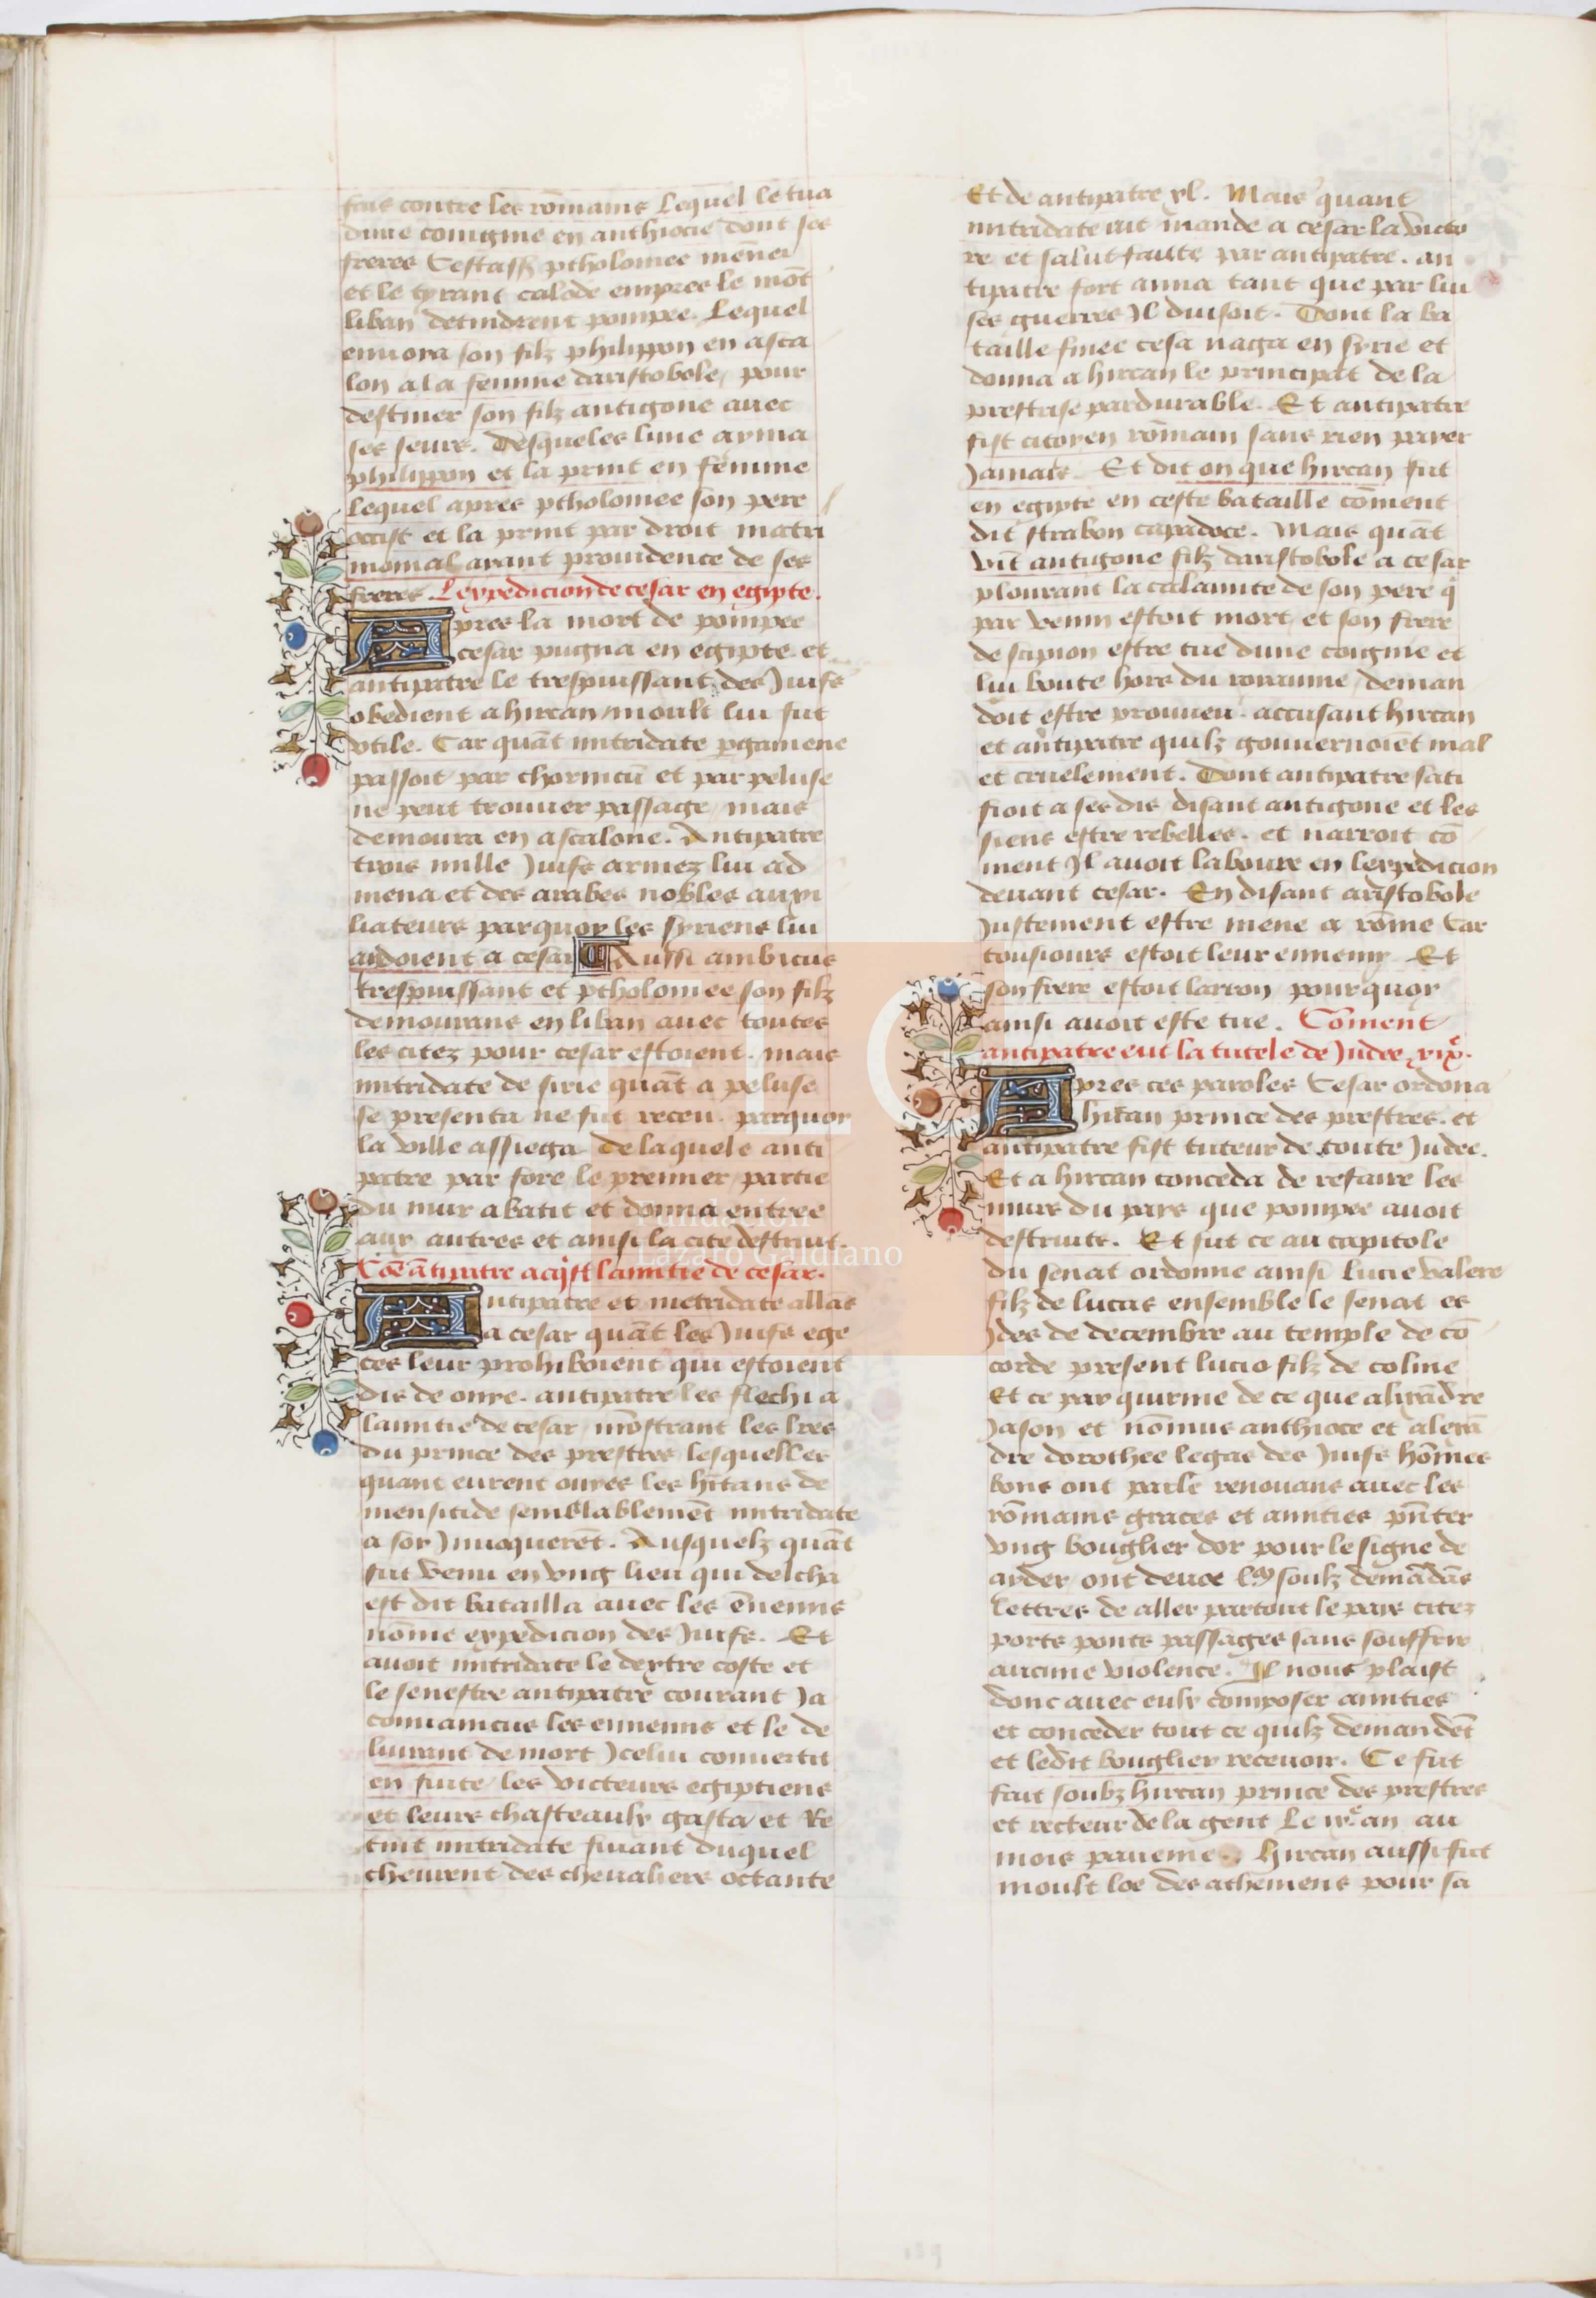 fais contre les rōmains Lequel le tua
dune congnie en anthiocie dont ses
freres Cestass ptholomee menner
et le tyrant calode empres le mōt
liban detindrent pompee. Lequel
enuoya son filz philippon en asca
lon a la femme daristobole, pour
destiner son filz antigone auec
ses seurs. Desqueles lune ayma
philippon et la print en femme
lequel apres ptholomee son pere
occist et la print par droit matri
monial ayant prouidence de ses
freres. Lexpedicion de cesar en egipte.
Apres la mort de pompee
cesar pugna en egipte. et
antipatre le trespuissant des Juifs
obedient a hircan moult lui fut
vtile. Car quāt mitridate pgamene
passoit par chormicū et par peluse
ne peut trouuer passage mais
demoura en ascalone. Antipatre
trois mille Juifs armez lui ad
mena et des arabes nobles auxi
liateurs parquoy les syriens lui
aidoient a cesar Aussi ambicus
trespuissant et ptholomee son filz
demourans en liban auec toutes
les citez pour cesar estoient. mais
mitridate de sirie quāt a peluse
se presenta ne fut receu. parquoy
la ville assiega de laquele anti
patre par fore le premier partie
du mur abatit et donna entree
aux autres et ainsi la cite destruit.
Cōe ātipatre acq̄st lamitie de cesar.
Antipatre et metridate allās
a cesar quāt les Juifs egep
ces leur prohiboient qui estoient
dis de onye. antipatre les flechi a
lamitie de cesar mōstrant les lres
du prince des prestres lesquelles
quant eurent ouyes les hitans de
mensicide semblablemēt mitridate
a soy Inuoquerēt. Ausquelz quāt
fut venu en vng lieu qui delcha
est dit batailla auec les ēnemis
nōme expedicion des Juifs. Et
auoit mitridate le dextre coste et
le senestre antipatre courant Ja
conuaincus les ennemis et le de
liurant de mort Jcelui conuertit
en fuite, les victeurs egiptiens
et leurs chasteaulx gasta et Re
tint mitridate fuiant duquel
cheurent des cheualiers octante
Et de antipatre xl. Mais quant
mitridate ait mande a cesar la victoi
re et salut faitte par antipatre. an
tipatre fort anna tant que par lui
ses guerres Jl diuisoit. Dont la ba
taille finee cesa naga en syrie et
donna a hircan le principat de la
prestrise pardurable. Et antipatre
fist citoyen rōmain sans rien payer
Jamais. Et dit on que hircan fut
en egipte en ceste bataille cōment
dit strabon capadoce. Mais quāt
vīt antigone filz daristobole a cesar
plourant la calamite de son pere q̄
par venin estoit mort, et son frere
de scipion estre tue dune coignie et
lui boute hors du royaume, deman
doit estre prouueu. accusant hircan
et antipatre quilz gouuernoiēt mal
et cruelement. Dont antipatre sati
fioit a ses dis disant antigone et les
siens estre rebelles. et narroit cō
ment Jl auoit laboure en lexpedicion
deuant cesar. En disant aristobole
Justement estre mene a rōme Car
tousiours estoit leur ennemy Et
son frere estoit larron pourquoy
ainsi auoit este tue. Cōment
antipatre eut la tutele de Judee xixe.
Apres ces paroles Cesar ordona
hircan prince des prestres. et
antipatre fist tuteur de toute Judee.
Et a hircan conceda de refaire les
murs du pays que pompee auoit
destruits. Et fut ce au capitole
du senat ordonne ainsi lucie valere
filz de lucas ensemble le senat es
Jdes de decembre au temple de cō
corde present lucio filz de coline
Et ce par quirine de ce que alixādre
Jason et nōmus anthioce et alexā
dre dorothee legas des Juifs hōmes
bons ont parle renouans auec les
rōmains graces et amities pn̄ter
vng bouglier dor pour le signe de
ayder ont deuoe lM soulz demādās
lettres de aller partout le pays citez
ports ponts passages sans souffrir
aucune violence. Jl nous plaist
donc auec eulx composer amities
et conceder tout ce quilz demandēt
et ledit bouglier receuoir. Ce fut
fait soubz hircan prince des prestres
et recteur de la gent Le ixe an au
mois paneme. hircan aussi fut
moult loe des atheniens pour sa
Fundación
Lázaro Galdiano